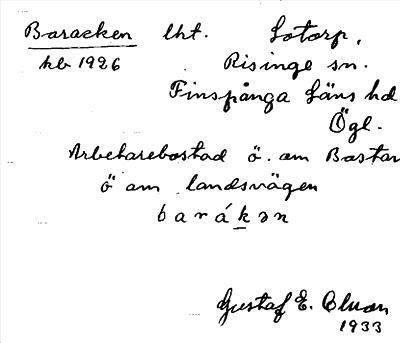 Baracken lht. Lotorp,
kb 1926 Risinge sn.
Finspånga Läns hd.
Ögl.
Arbetarebostad ö. om Bastan
ö om landsvägen
b a r á k ə n
Gustaf E.
1933